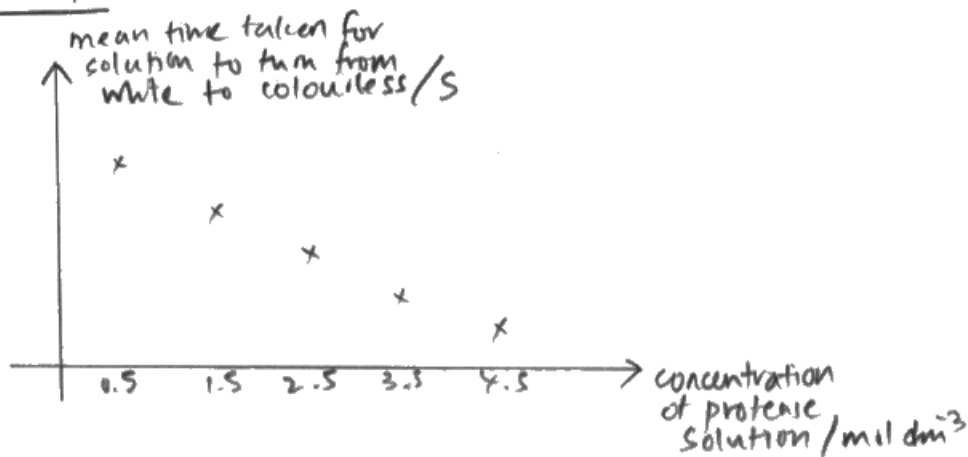 mean time taken for
solution to turn from
white to colourless/s
0.5 1.5 2.5 3.5 4.5
concentration
of protease
solution/mol dm-3